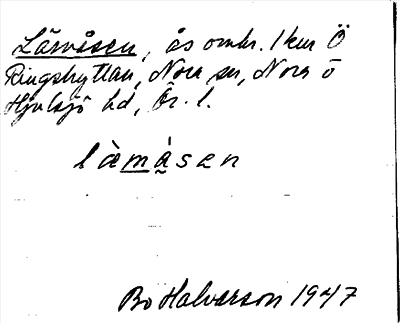 Lämåsen, ås omkr. 1 km Ö
Ringshyttan, Nora sn, Nora o
Hjulsjö hd, Ör. l.
làmásen
Bo Halvarson 1947